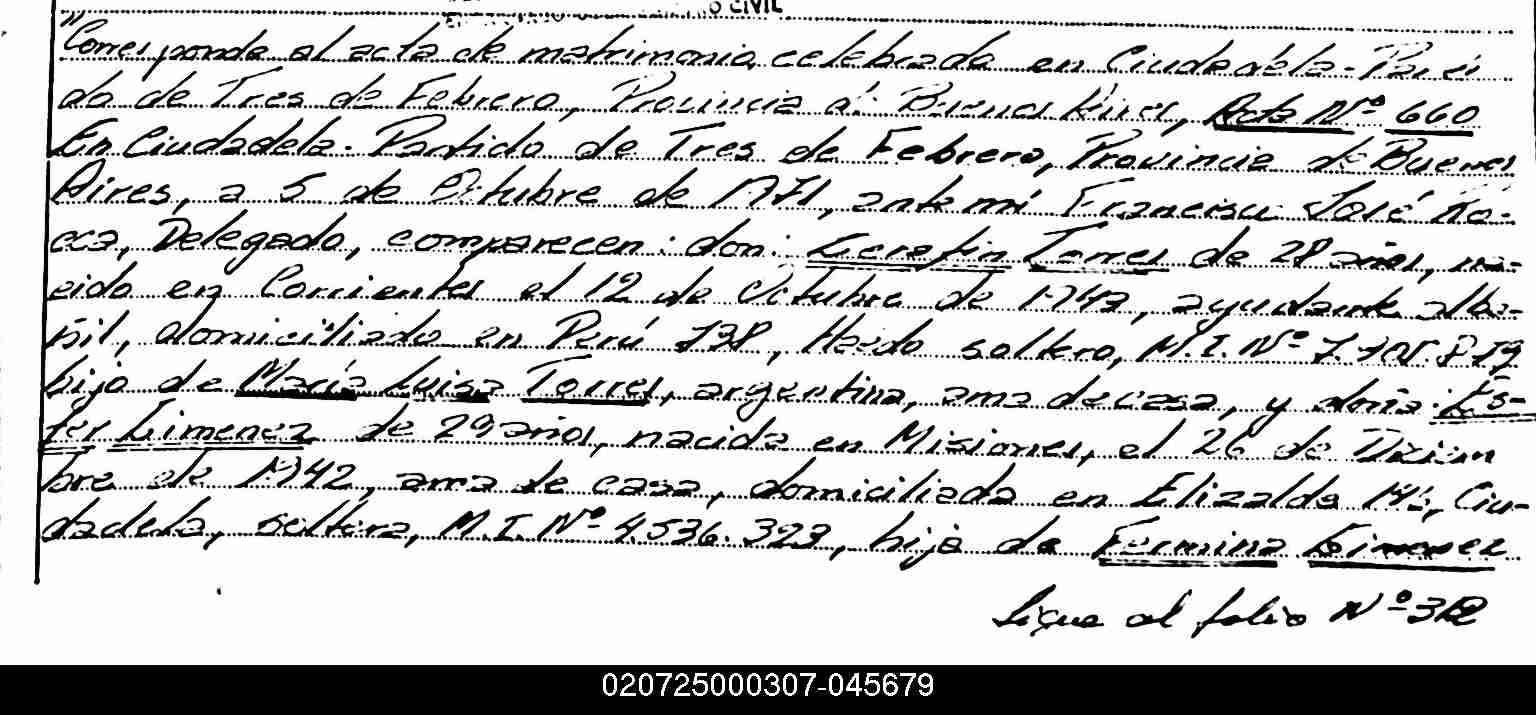 O CIVIL
"Corresponde al acta de matrimonio, celebrada en Ciudadela - Parti
do de Tres de Febrero, Provincia d. Buenos Aires, Acta Nº 660
En Ciudadela - Partido de Tres de Febrero, Provincia de Buenos
Aires, a 5 de Octubre de 1971, ante mi Francisco José Ro-
cca, Delegado, comparecen: don: Serafin Torres de 28 años, na-
cido en Corrientes el 12 de Octubre de 1942, ayudante alba-
ñil, domiciliado en Perú 738, Haedo soltero, M.I. Nº
hijo de María Luisa Torres, argentina, ama de casa, y doña: Es-
ter Gimenez de 29 años, nacida en Misiones, el 26 de Diciem
bre de 1942, ama de casa, domiciliada en Elizalde Ciu-
dadela, soltera, M.I. Nº 4.536.323, hija de Fermina Gimenez
Sigue al folio Nº 312
020725000307-045679